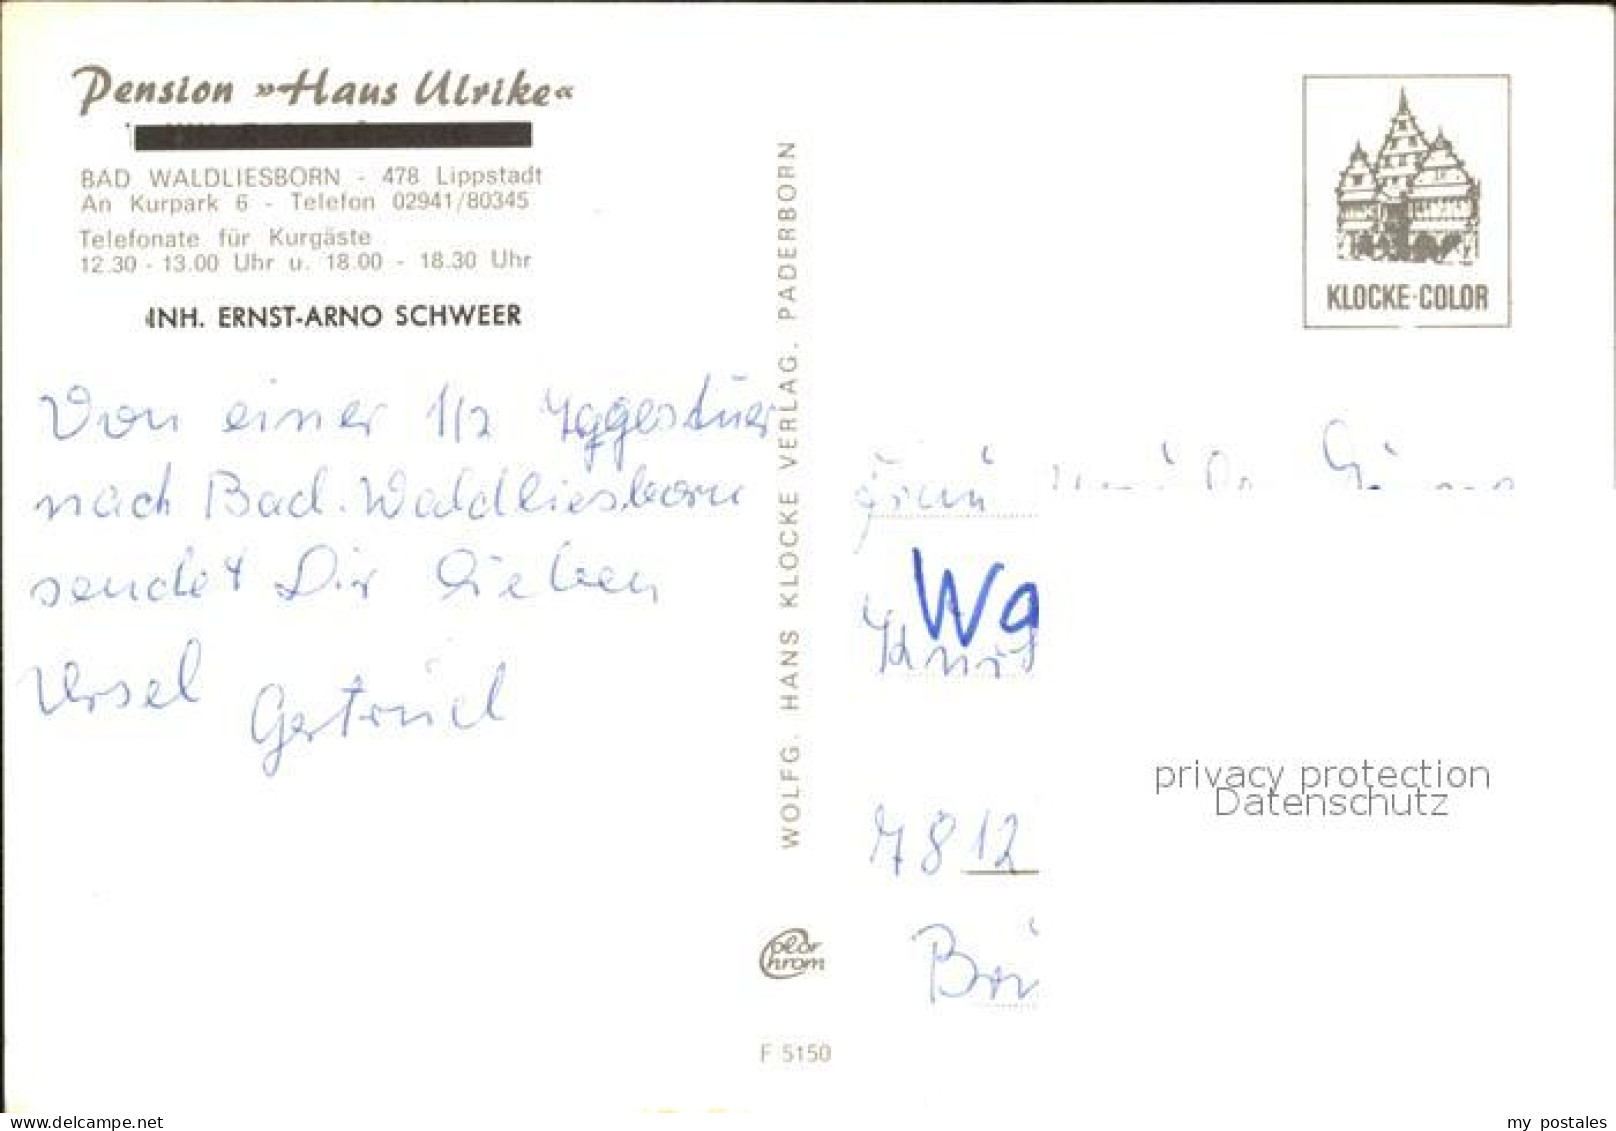 Pension »Haus Ulrike«
BAD WALDLIESBORN - 478 Lippstadt
An Kurpark 6 - Telefon 02941/80345
Telefonate für Kurgäste
12.30 - 13.00 Uhr u. 18.00 - 18.30 Uhr
INH. ERNST-ARNO SCHWEER
Von einer 1/2
nach Bad. Waldliesborn
sendet Dir lieben
Ursel Gertrud
WOLFG. HANS KLOCKE VERLAG. PADERBORN
Color Chrom
F 5150
KLOCKE-COLOR
Wa
7812
privacy protection
Datenschutz
www.oldthing.net
my postales